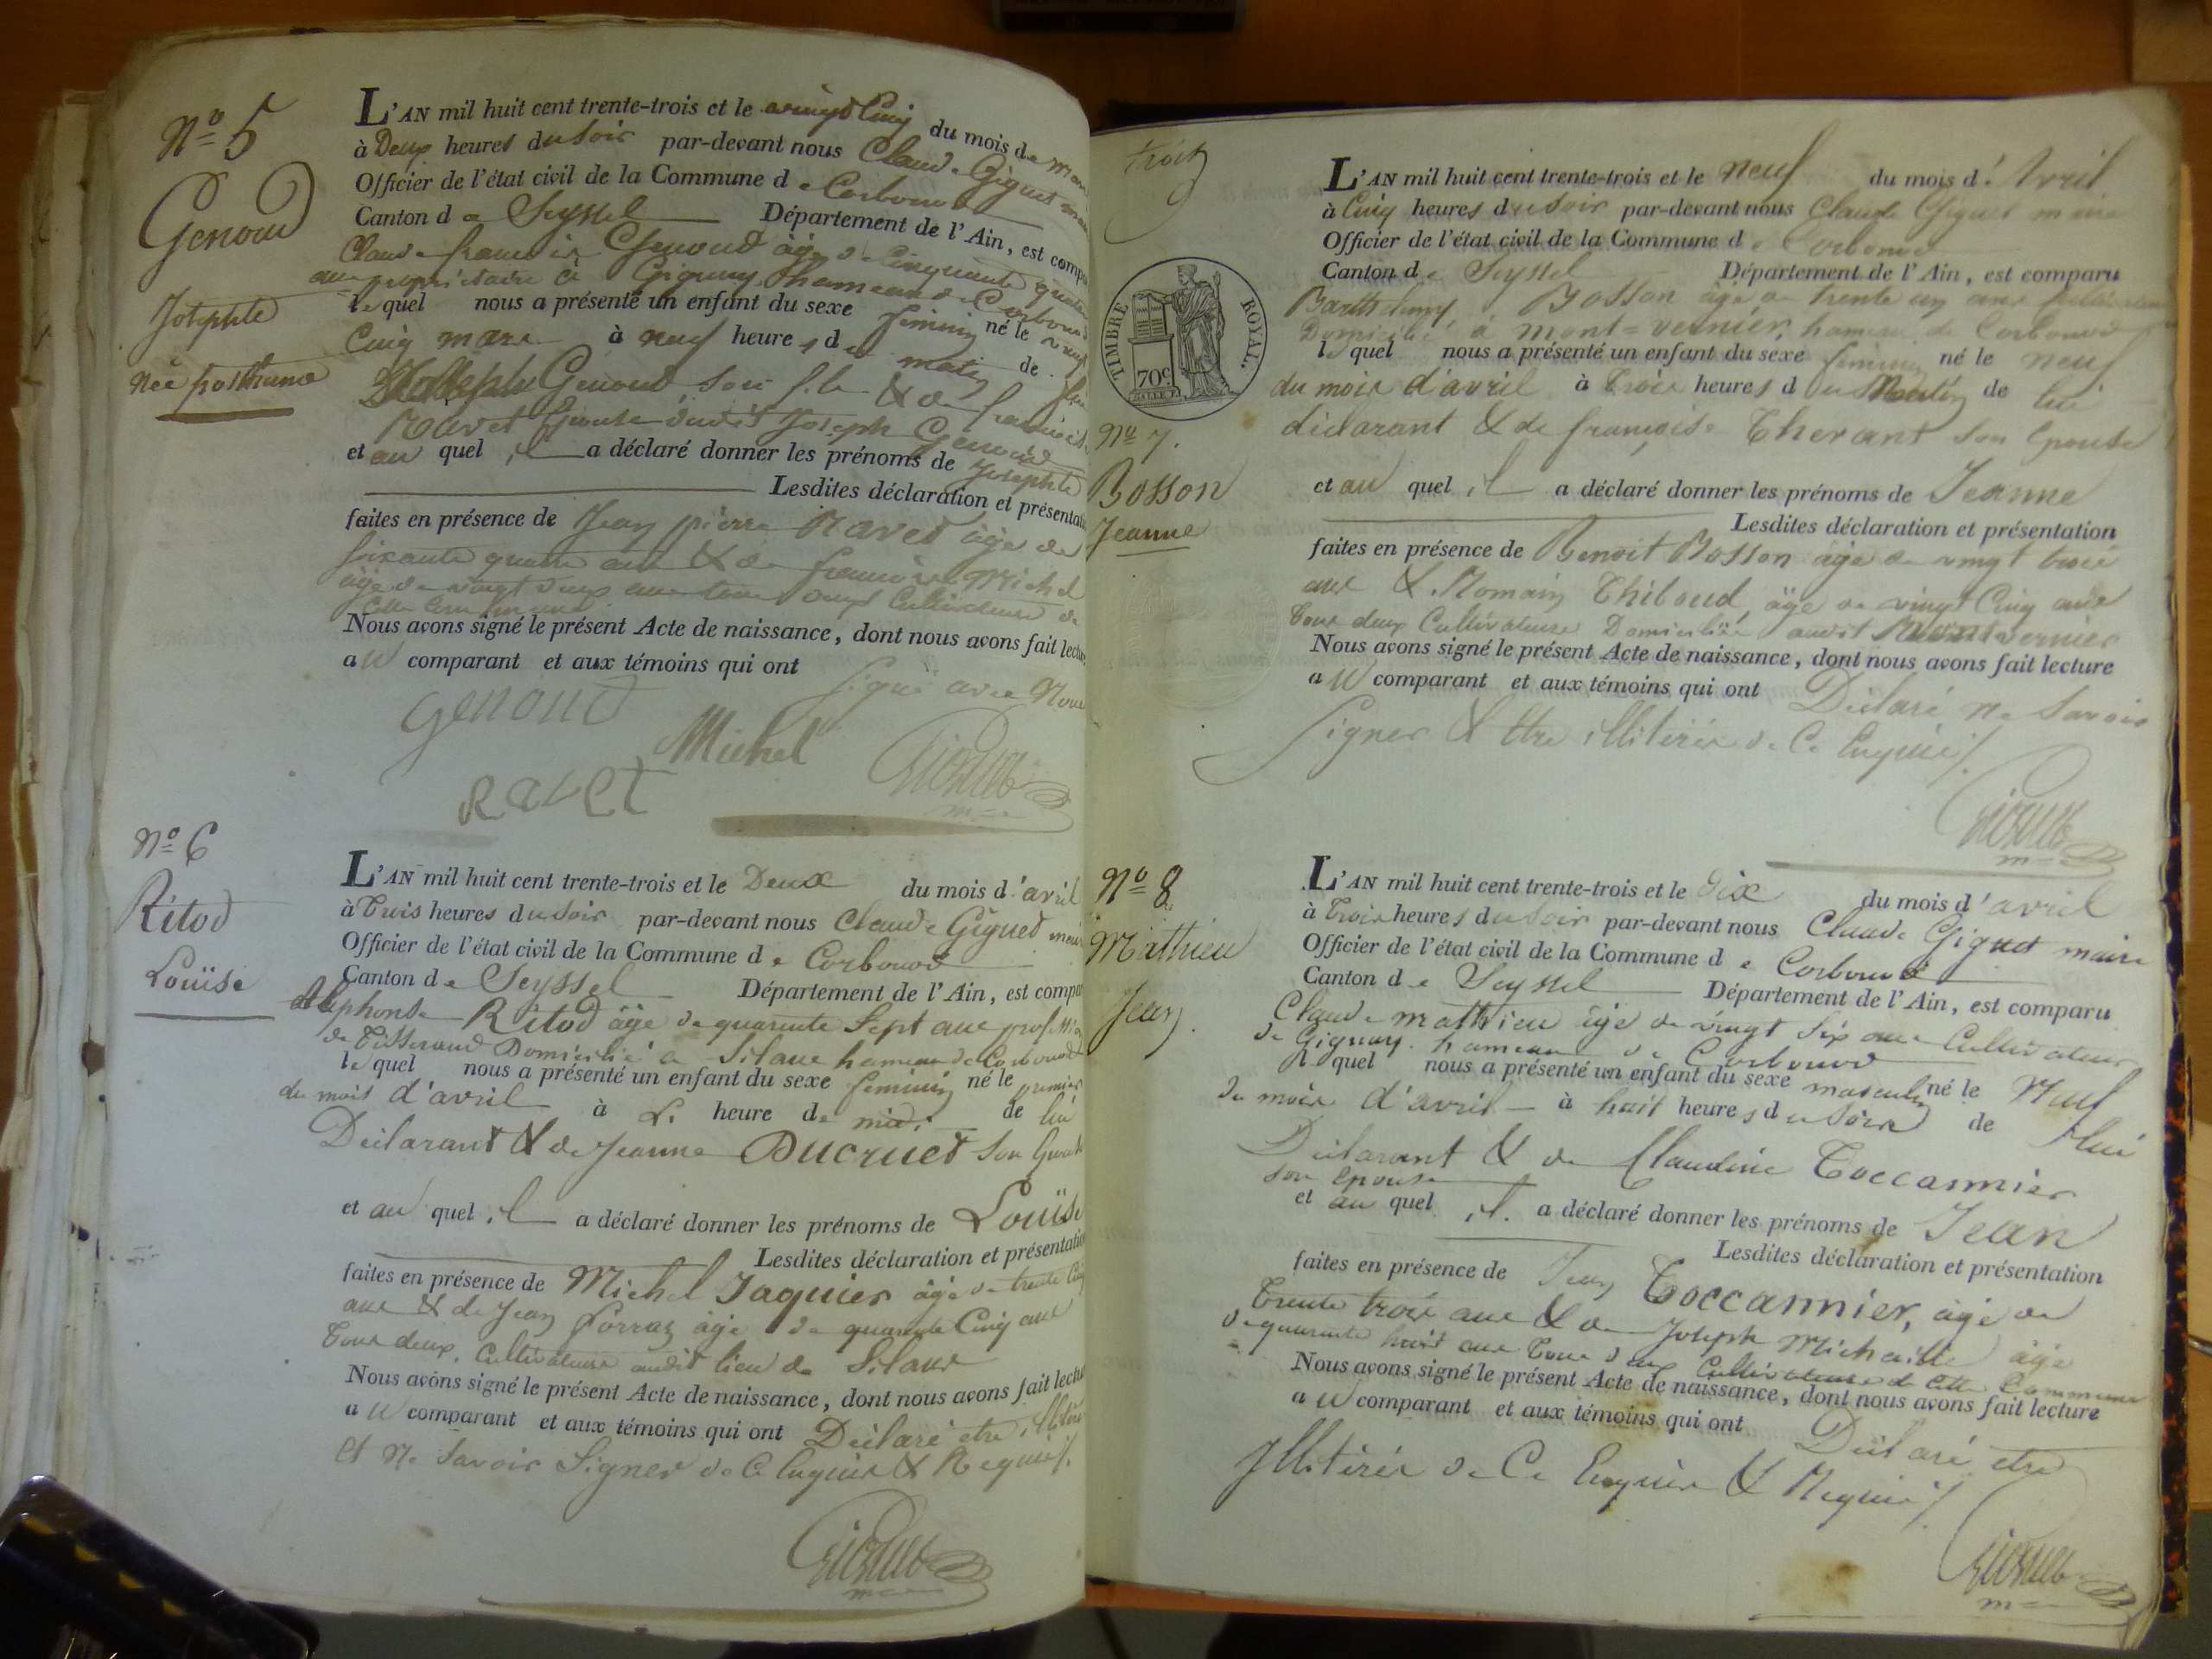 Nº 5
Genoud
Josephte
née posthume
L'AN mil huit cent trente-trois et le vingt Cinq du mois de mars
à Deux heures du Soir par-devant nous Claude Giguet maire
Officier de l'état civil de la Commune de Corbonod
Canton de Seyssel Département de l'Ain, est comparu
Claude françois Genoud âgé de Cinquante quatre
ans propriétaire à Gignez hameau de Corbonod
lequel nous a présenté un enfant du sexe féminin né le vingt
Cinq mars à neuf heures du matin de feu
Joseph Genoud son fils & de françoise
Ravet Epouse dudit Joseph Genoud
et au quel il a déclaré donner les prénoms de Josephte
Lesdites déclaration et présentation
faites en présence de Jean pierre Ravet âgé de
soixante quatre ans & de françois Michel
âgé de vingt deux ans tous deux Cultivateurs de
cette Commune
Nous avons signé le présent Acte de naissance, dont nous avons fait lecture
au comparant et aux témoins qui ont signé avec Nous
Genoud
Michel
Ravet
Giguet
m
Nº 6
Ritod
Louïse
L'AN mil huit cent trente-trois et le Deux du mois d'avril
à Trois heures du Soir par-devant nous Claude Giguet maire
Officier de l'état civil de la Commune de Corbonod
Canton de Seyssel Département de l'Ain, est comparu
Alphonse Ritod âgé de quarante Sept ans profession
de Tisserand Domicilié à Silans hameau de Corbonod
lequel nous a présenté un enfant du sexe féminin né le premier
du mois d'avril à L. heure de midi de lui
Déclarant & de Jeanne Ducruet Son Epouse
et au quel il a déclaré donner les prénoms de Louïse
Lesdites déclaration et présentation
faites en présence de Michel Jaquier âgé de trente Cinq
ans & de Jean Forraz âgé de quarante Cinq ans
Tous deux Cultivateurs audit lieu de Silans
Nous avons signé le présent Acte de naissance, dont nous avons fait lecture
au comparant et aux témoins qui ont Déclaré être illitérés
et Ne Savoir Signer de Ce Enquis & Requis /.
Giguet
m
trois
TIMBRE ROYAL.
70c
Nº 7.
Bosson
Jeanne
L'AN mil huit cent trente-trois et le neuf du mois d'Avril
à Cinq heures du Soir par-devant nous Claude Giguet maire
Officier de l'état civil de la Commune de Corbonod
Canton de Seyssel Département de l'Ain, est comparu
Barthelemy Bosson âgé de trente un ans Cultivateur
Domicilié à mont=vernier, hameau de Corbonod
lequel nous a présenté un enfant du sexe féminin né le neuf
du mois d'avril à Trois heures du Matin de lui
déclarant & de françoise Therant son Epouse
et au quel il a déclaré donner les prénoms de Jeanne
Lesdites déclaration et présentation
faites en présence de Benoit Bosson âgé de vingt trois
ans & Romain Thiboud âgé de vingt Cinq ans
Tous deux Cultivateurs Domiciliés audit Montvernier
Nous avons signé le présent Acte de naissance, dont nous avons fait lecture
au comparant et aux témoins qui ont Déclaré Ne Savoir
Signer & Etre illitérés de Ce Enquis /.
Giguet
m
Nº 8
Mathieu
Jean
L'AN mil huit cent trente-trois et le dix du mois d'avril
à Trois heures du Soir par-devant nous Claude Giguet maire
Officier de l'état civil de la Commune de Corbonod
Canton de Seyssel Département de l'Ain, est comparu
Claude mathieu âgé de vingt Six ans Cultivateur
de Gignez hameau de Corbonod
lequel nous a présenté un enfant du sexe masculin né le Neuf
du mois d'avril à huit heures du Soir de Lui
Déclarant & de Claudine Toccannier
son Epouse
et au quel il a déclaré donner les prénoms de Jean
Lesdites déclaration et présentation
faites en présence de Jean Toccannier, âgé de
Trente trois ans & de Joseph Michaille âgé
de quarante huit ans Tous deux Cultivateurs de Cette Commune
Nous avons signé le présent Acte de naissance, dont nous avons fait lecture
au comparant et aux témoins qui ont Déclaré être
Illitérés de Ce Enquis & Requis /.
Giguet
m